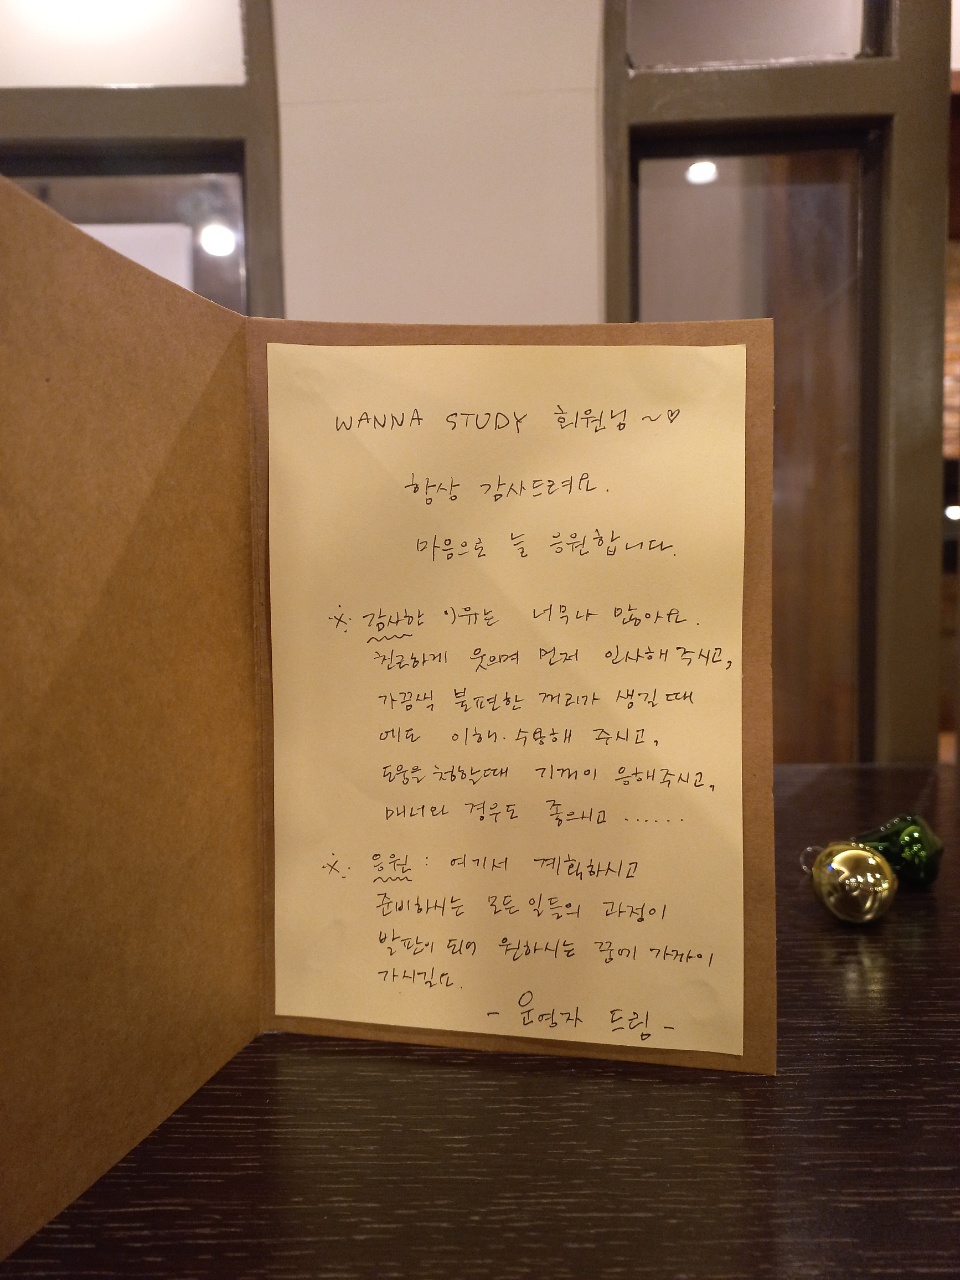 WANNA STUDY 회원님 ~♡
항상 감사드려요.
마음으로 늘 응원합니다.
※ 감사한 이유는 너무나 많아요.
친근하게 웃으며 먼저 인사해 주시고,
가끔씩 불편한 꺼리가 생길 때
에도 이해·수용해 주시고,
도움을 청할때 기꺼이 응해주시고,
매너와 경우도 좋으시고 ......
※ 응원 : 여기서 계획하시고
준비하시는 모든 일들의 과정이
발판이 되어 원하시는 꿈에 가까이
가시길요.
- 운영자 드림 -